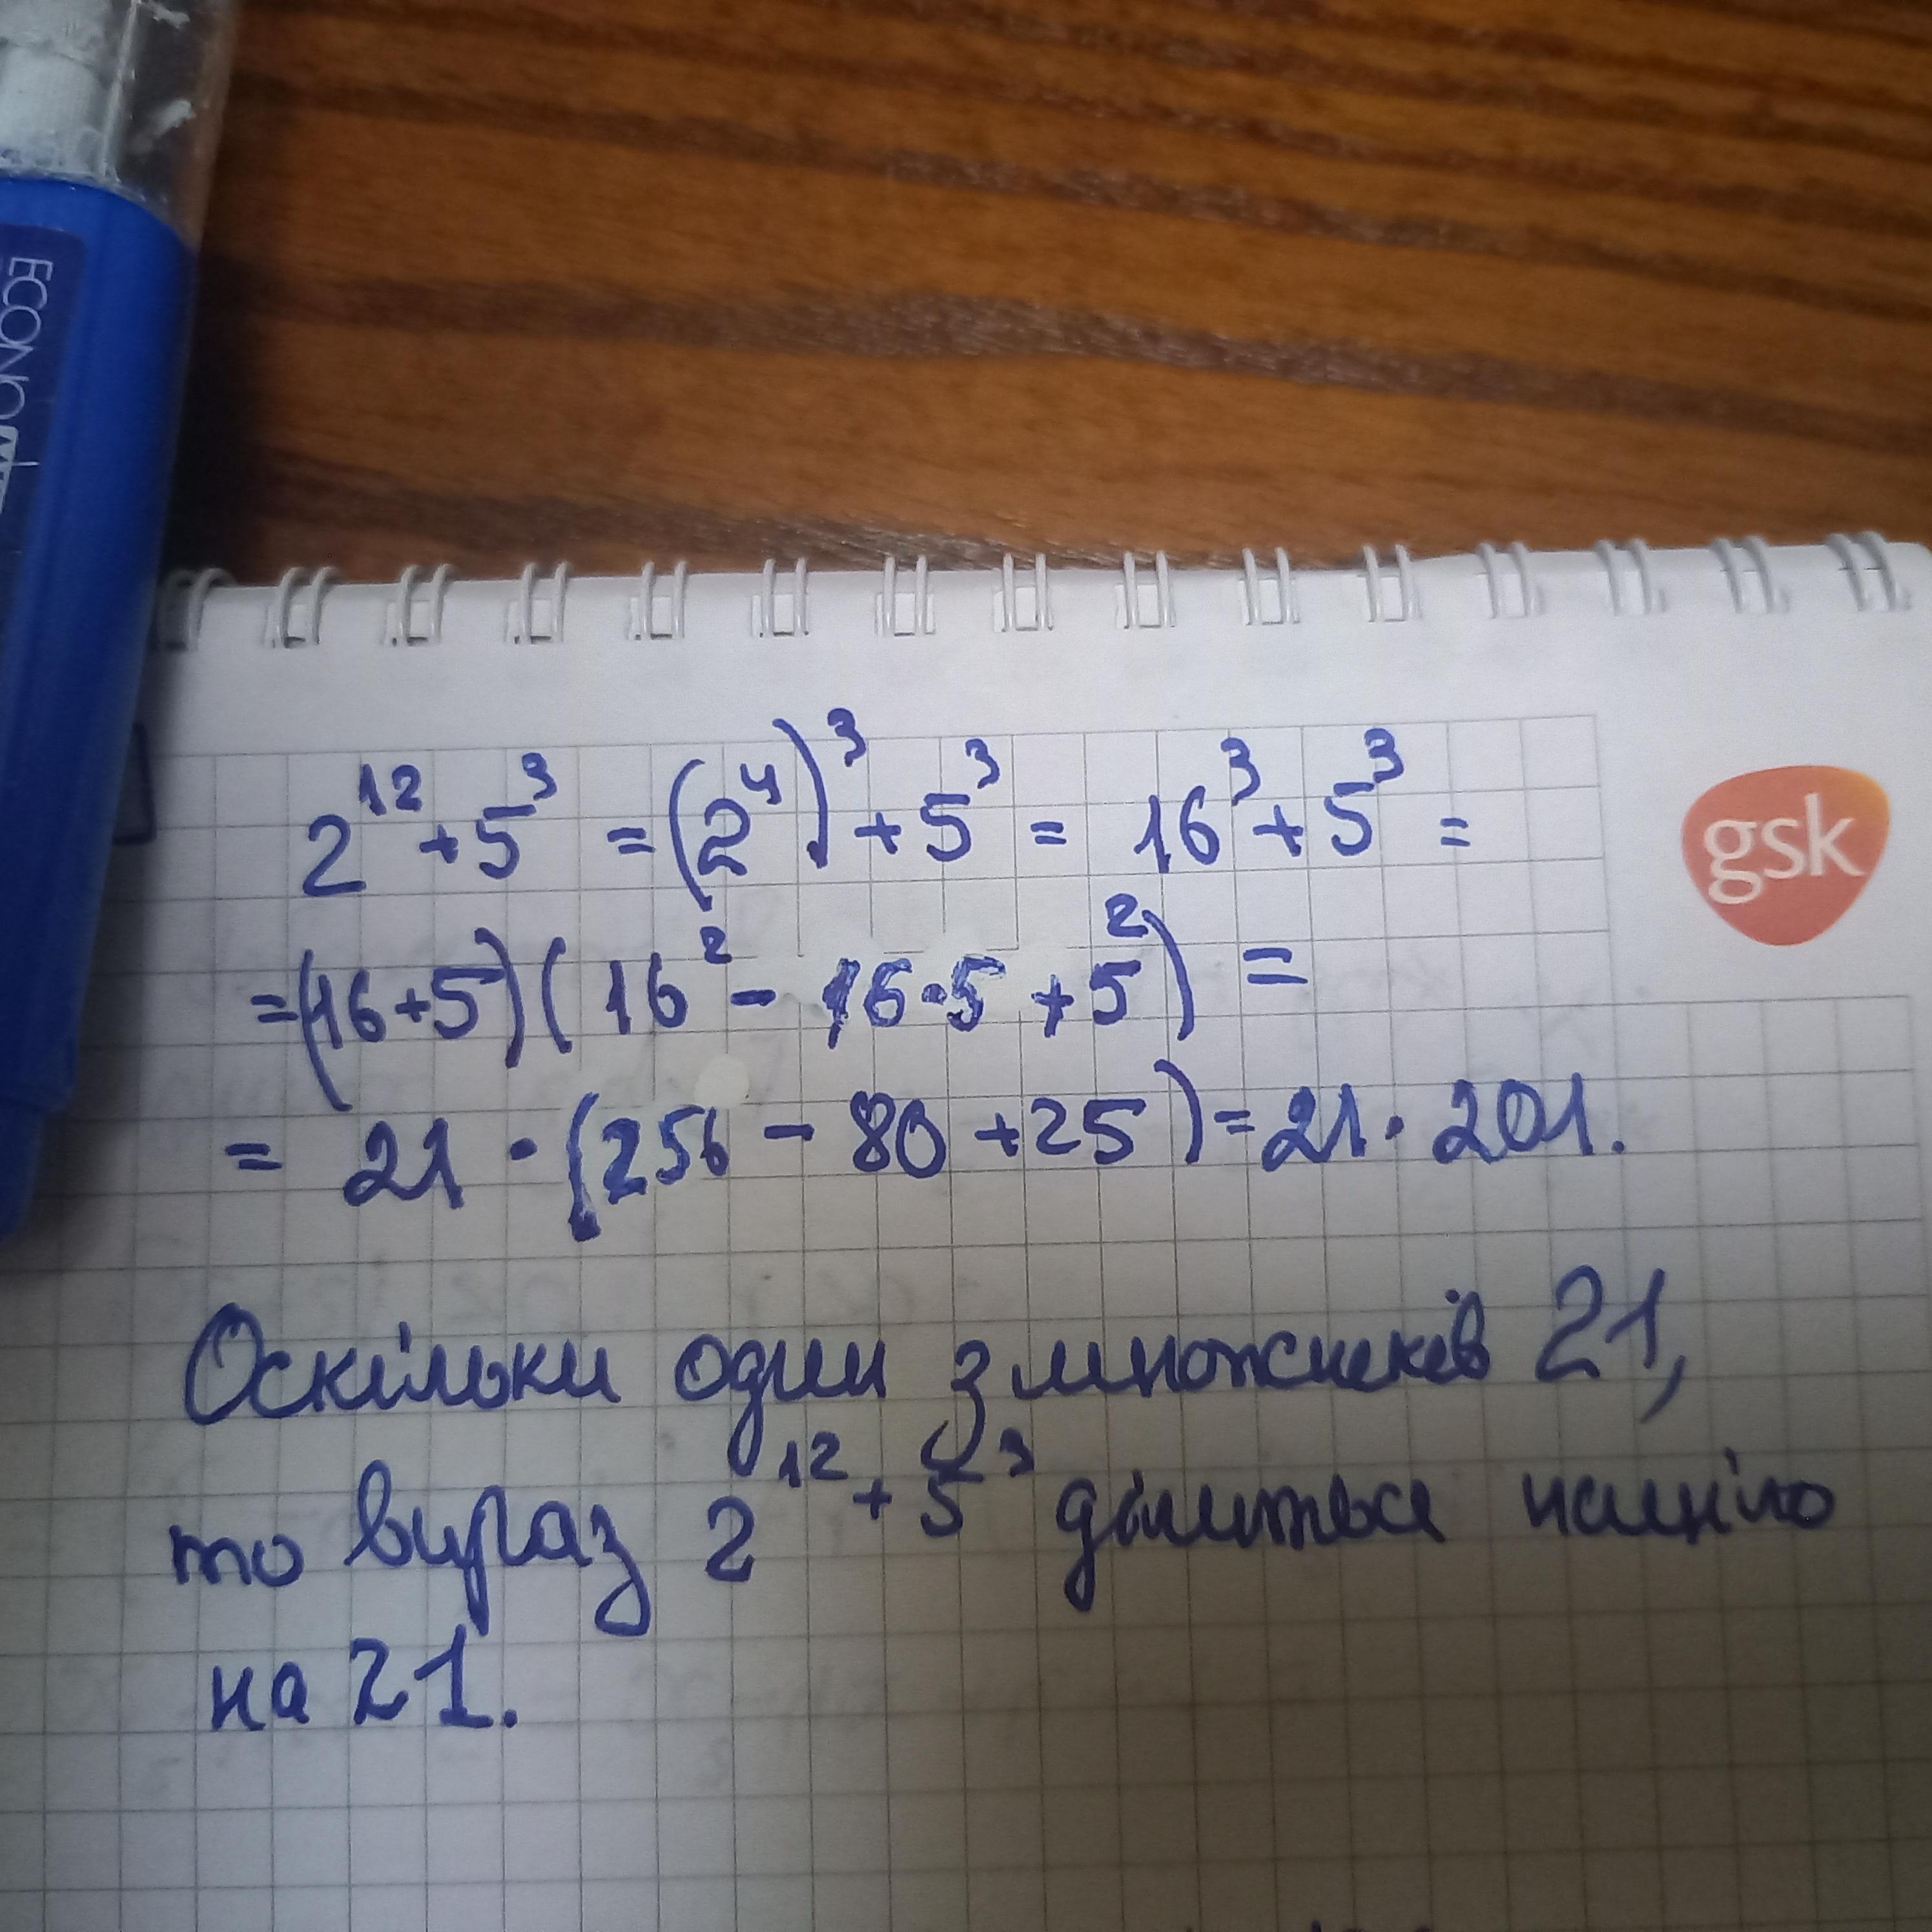 ECONOMIX
gsk
2¹² + 5³ = (2⁴)³ + 5³ = 16³ + 5³ =
= (16+5)(16² - 16·5 + 5²) =
= 21 · (256 - 80 + 25) = 21 · 201.
Оскільки один з множників 21,
то вираз 2¹² + 5³ ділиться націло
на 21.